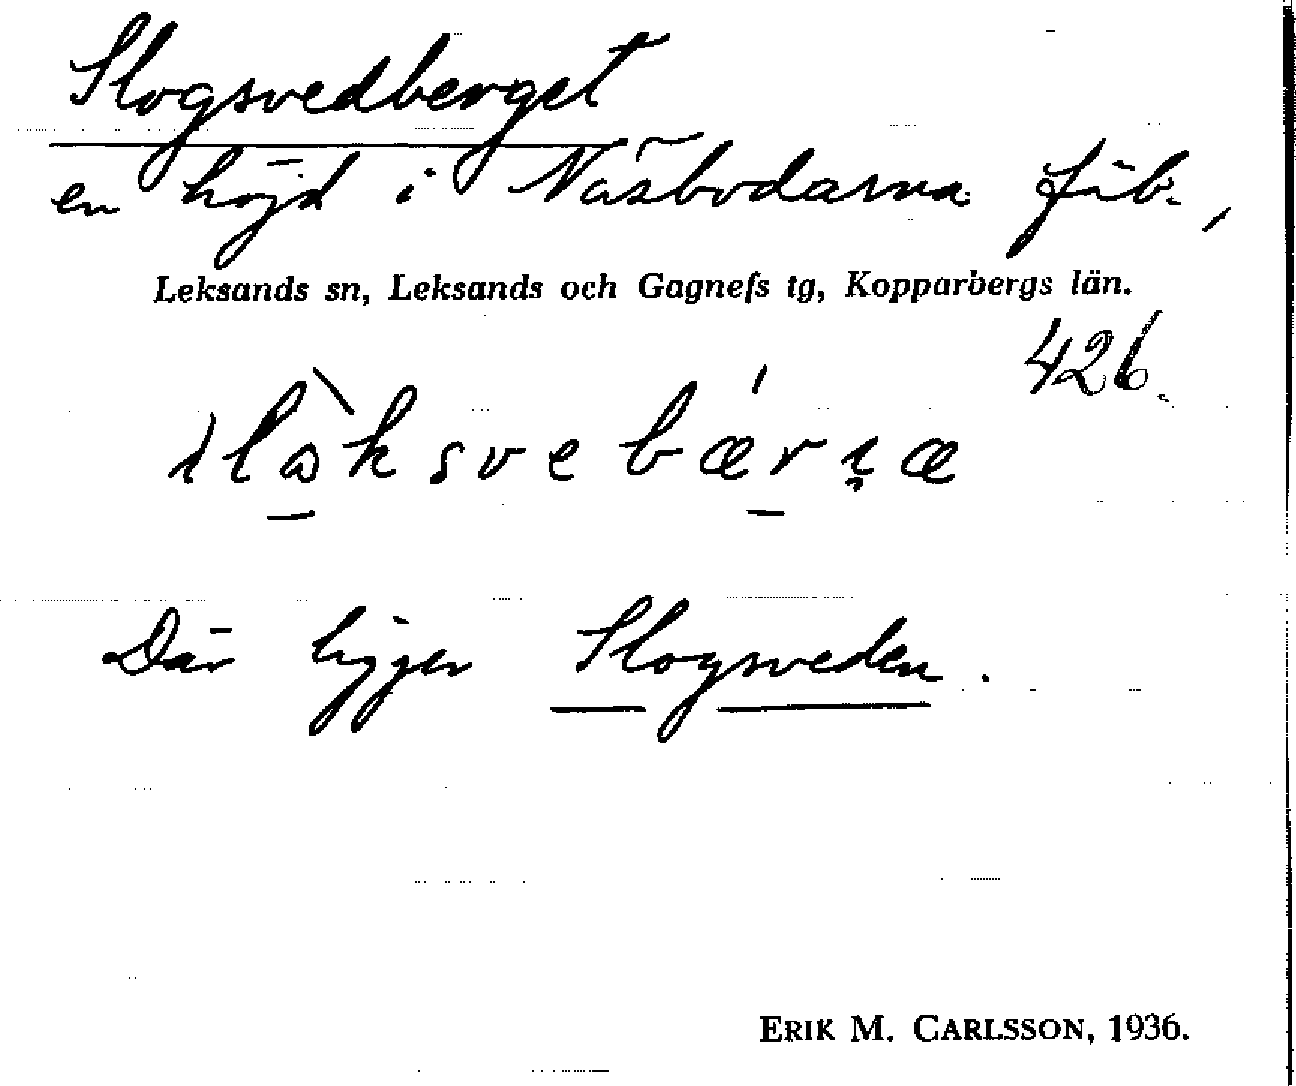 Slogsvedberget
en höjd i Näsbodarna fäb.,
Leksands sn, Leksands och Gagnefs tg, Kopparbergs län.
426.
Där ligger Slogsveden.
ERIK M. CARLSSON, 1936.